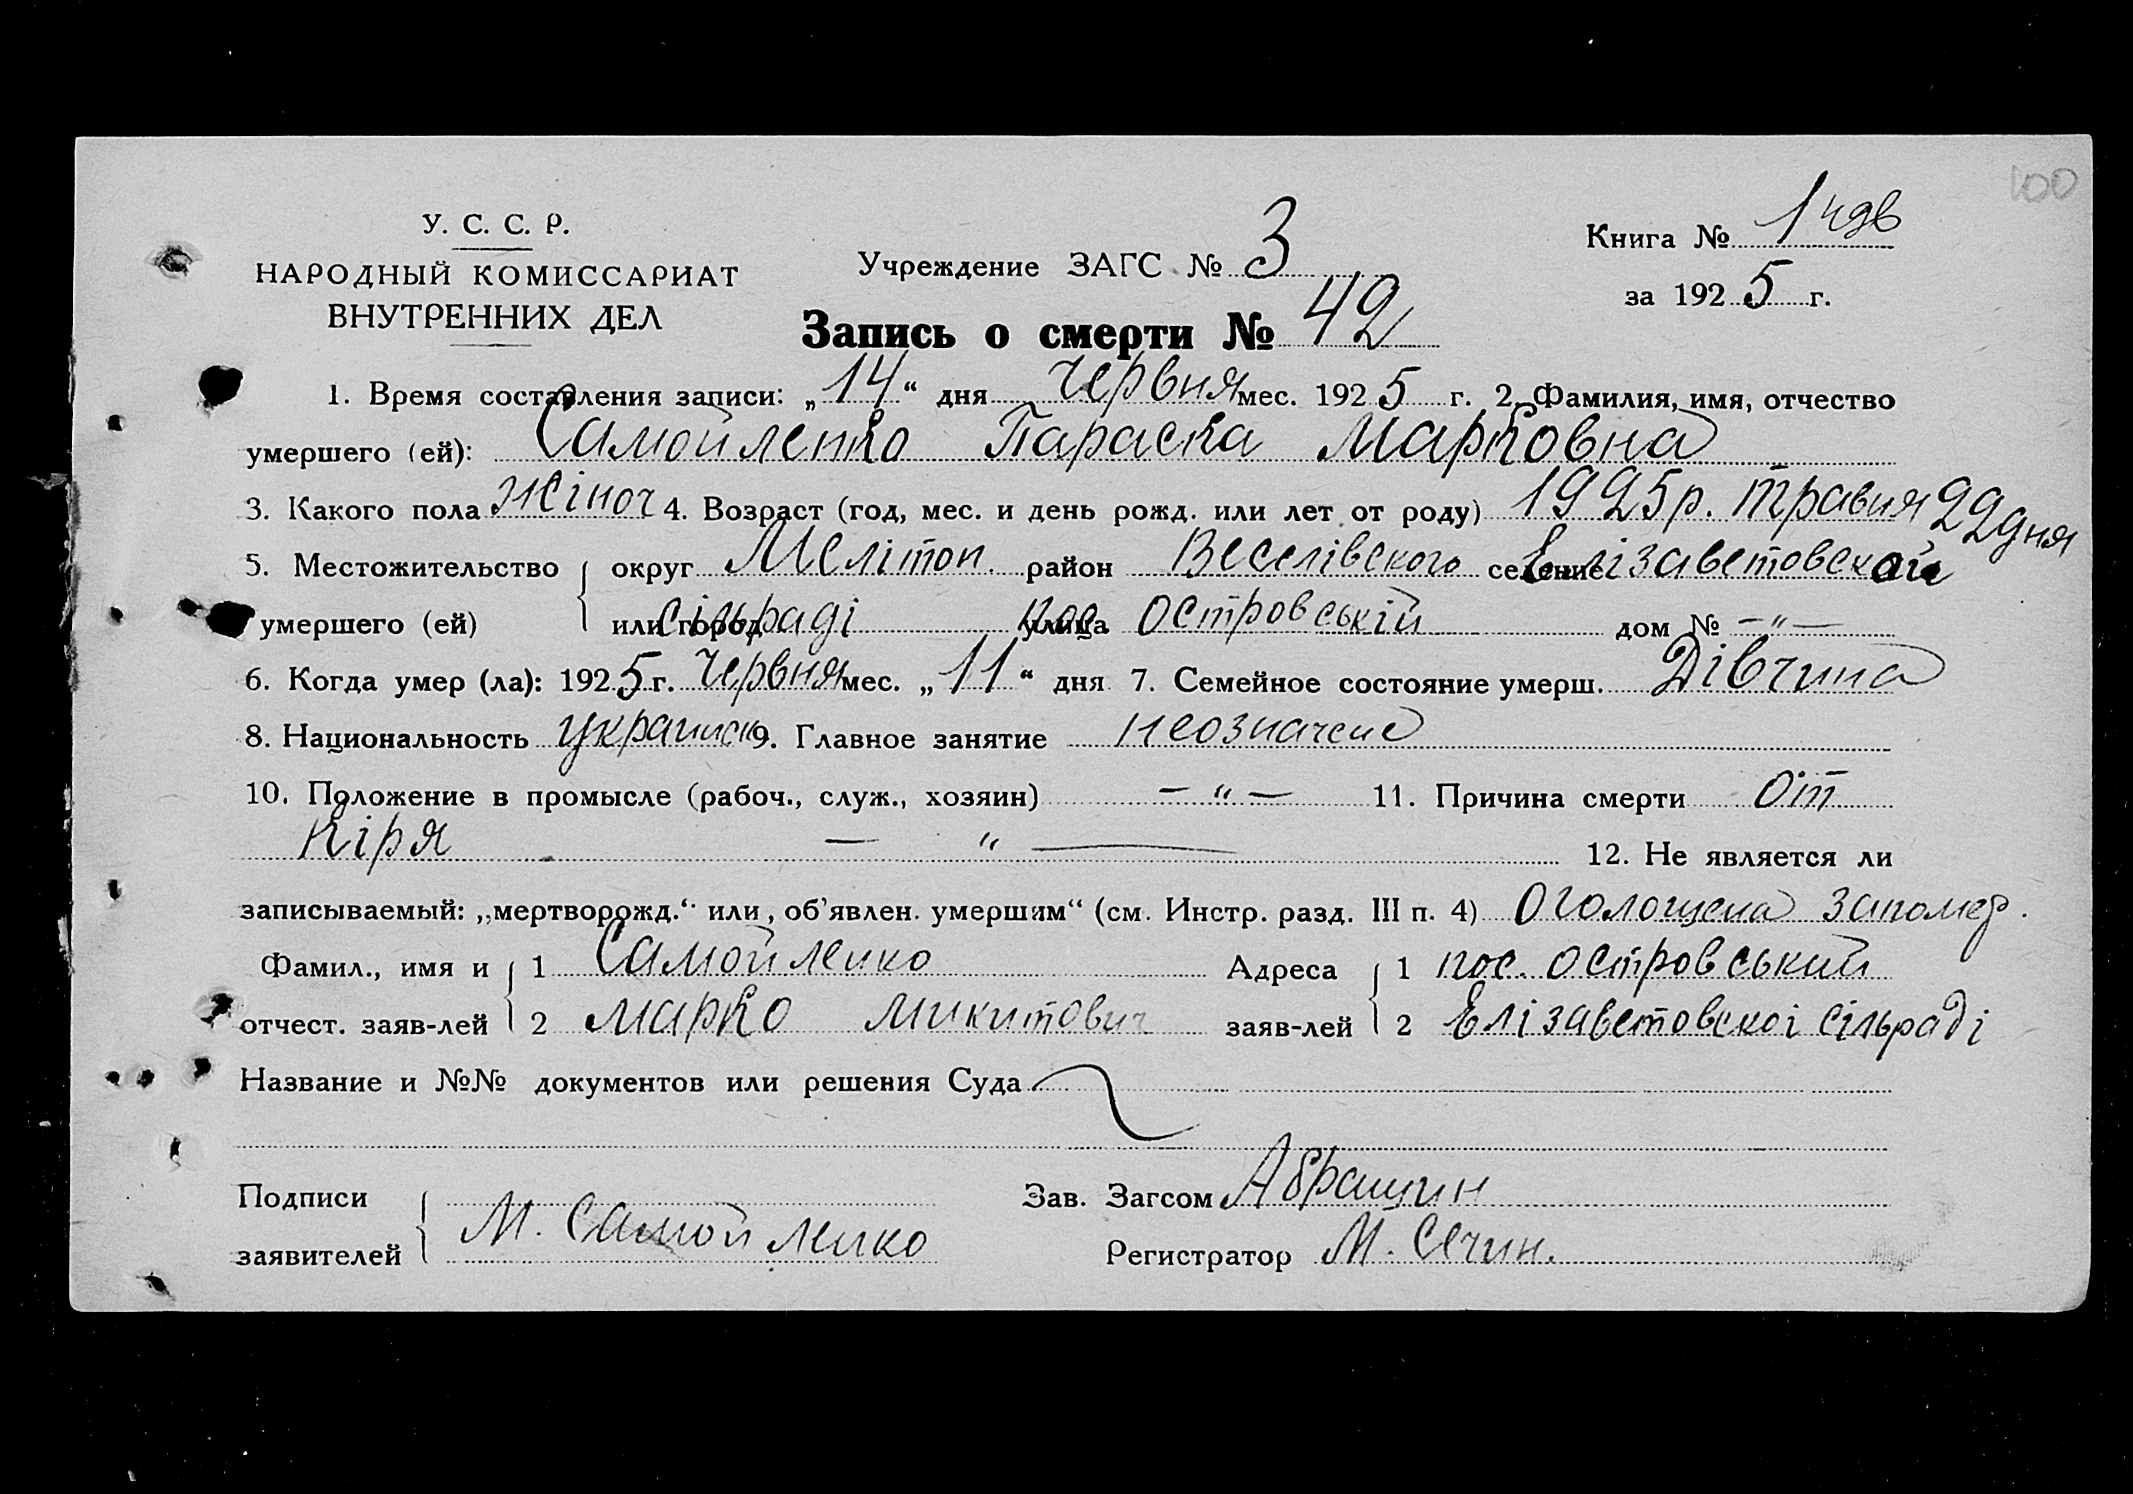 100
У. С. С. Р.
НАРОДНЫЙ КОМИССАРИАТ
ВНУТРЕННИХ ДЕЛ
Учреждение ЗАГС № 3
Книга № 1
за 1925 г.
Запись о смерти № 42
1. Время составления записи: „14“ дня червня мес. 1925 г. 2. Фамилия, имя, отчество
умершего (ей): Самойленко Параска Марковна
3. Какого пола жіноч 4. Возраст (год, мес. и день рожд. или лет от роду) 1925 р. травня 22 дня
5. Местожительство округ Мелітоп. район Веселівского селение Елізаветовской
умершего (ей) или город сільраді улица пос. Островській дом № — " —
6. Когда умер (ла): 1925 г. червня мес. „11“ дня 7. Семейное состояние умерш. Дівчина
8. Национальность украинськ 9. Главное занятие неозначене
10. Положение в промысле (рабоч., служ., хозяин) — " — 11. Причина смерти от
кіря — " — 12. Не является ли
записываемый: „мертворожд.“ или „об'явлен. умершим“ (см. Инстр. разд. III п. 4) Оголошена запомер.
Фамил., имя и 1 Самойленко Адреса 1 пос. Островський
отчест. заяв-лей 2 Марко Микитович заяв-лей 2 Елізаветовскоі сільраді
Название и №№ документов или решения Суда
Подписи Зав. Загсом Абрашин
заявителей М. Самойленко Регистратор М. Сечин.